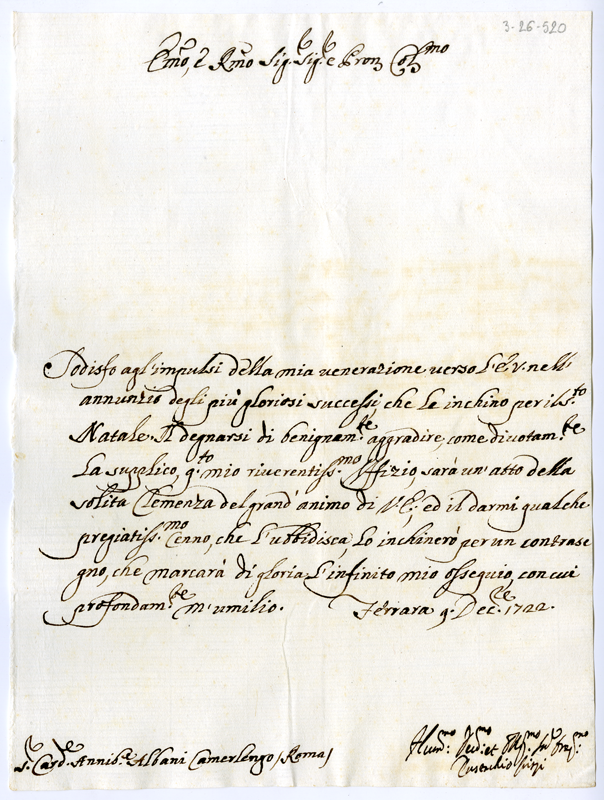 3-26-520
Emo, e Rmo Sig. Sig.e e Pron Col.mo
Sodisfo agl'impulsi della mia venerazione verso L'E.V. nell'
annunzio degli più gloriosi successi, che Le inchino per il S.to
Natale. Il degnarsi di benignam.te aggradire, come divotam.te
La supplico, q.to mio riverentiss.mo Uffizio, sarà un'atto della
solita Clemenza del grand'animo di V.E; ed il darmi qualche
pregiatiss.mo Cenno, che L'ubbidisca, Lo inchinerò per un contrase
gno, che marcarà di gloria L'infinito mio ossequio, con cui
profondam.te m'umilio. Ferrara 9. Dec.re 1722.
S.r Card.le Annib.e Albani Camerlengo (Roma)
Hum.mo Dev.mo et Obl.mo